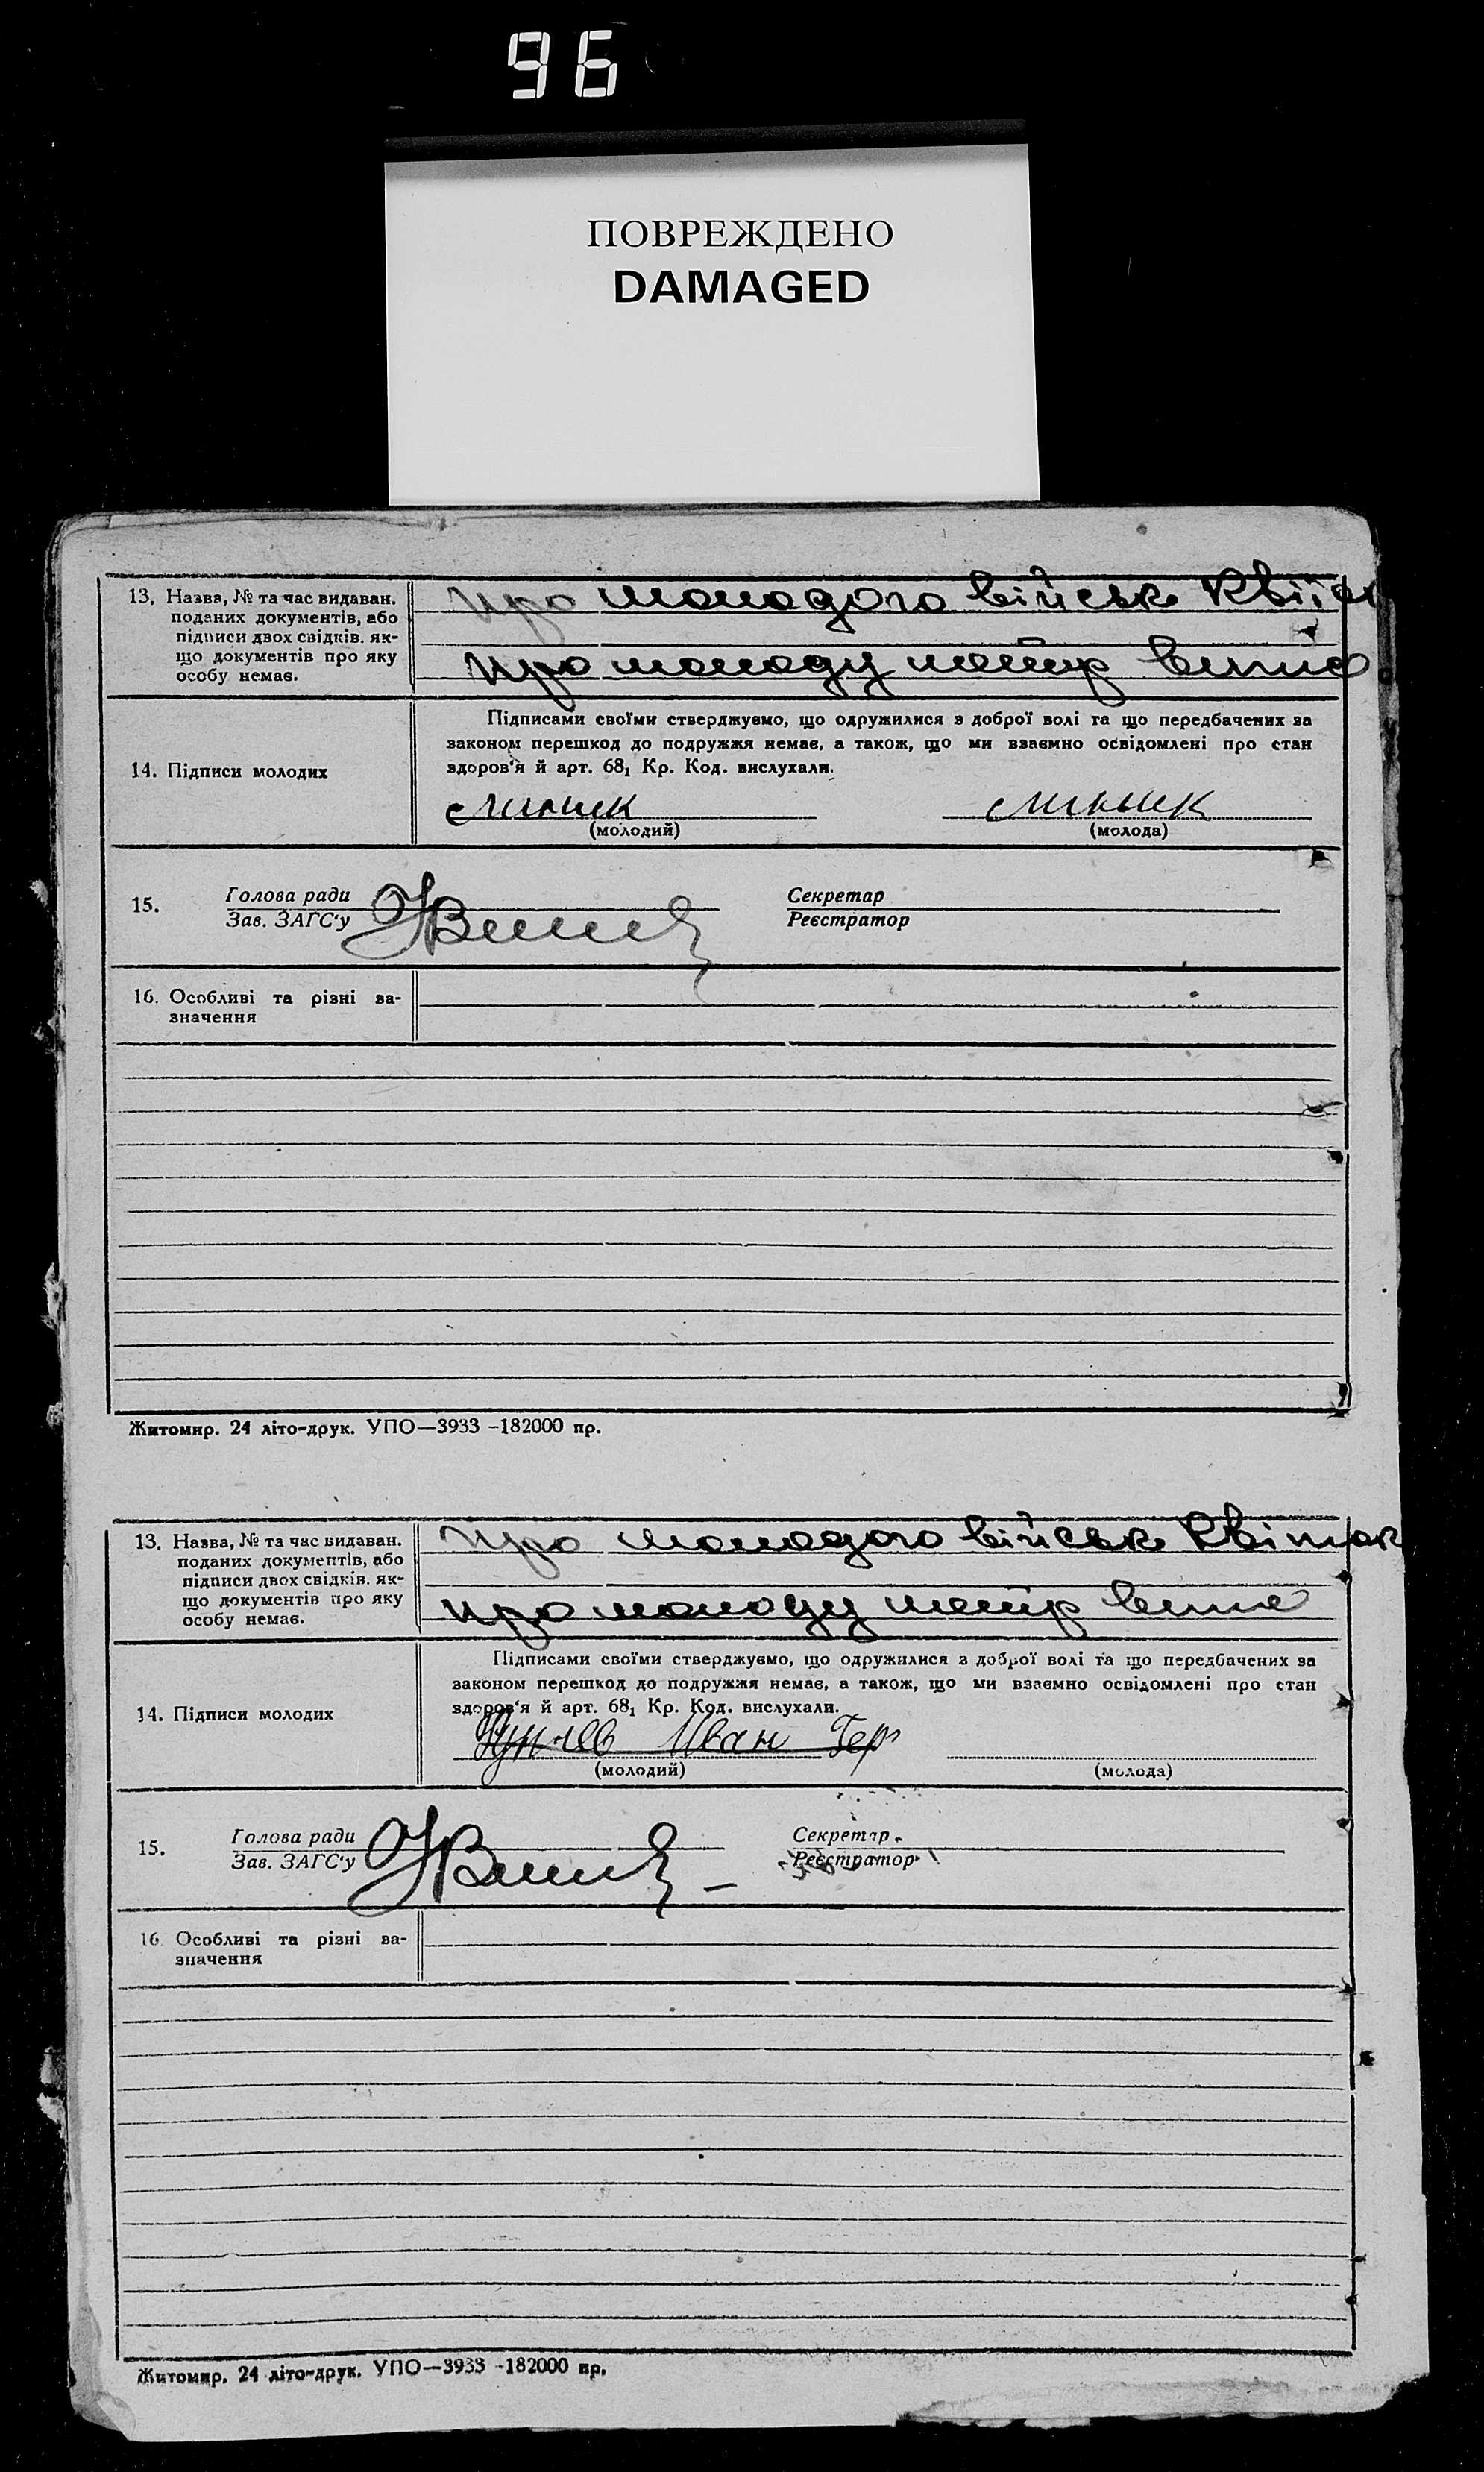 96
ПОВРЕЖДЕНО
DAMAGED
13. Назва, № та час видаван.
поданих документів, або
підписи двох свідків. як-
що документів про яку
особу немає.
про молодого військ Квіток
про молоду метр випис
14. Підписи молодих
Підписами своїми стверджуємо, що одружилися з доброї волі та що передбачених за
законом перешкод до подружжя немає, а також, що ми взаємно освідомлені про стан
здоров'я й арт. 68₁ Кр. Код. вислухали.
(молодий)
(молода)
15.
Голова ради
Зав. ЗАГС'у
Секретар
Реєстратор
16. Особливі та різні за-
значення
Житомир. 24 літо-друк. УПО—3933 -182000 пр.
13. Назва, № та час видаван.
поданих документів, або
підписи двох свідків. як-
що документів про яку
особу немає.
про молодого військ Квіток
про молоду метр випис
14. Підписи молодих
Підписами своїми стверджуємо, що одружилися з доброї волі та що передбачених за
законом перешкод до подружжя немає, а також, що ми взаємно освідомлені про стан
здоров'я й арт. 68₁ Кр. Код. вислухали.
Иван
(молодий)
(молода)
15.
Голова ради
Зав. ЗАГС'у
Секретар
Реєстратор
16. Особливі та різні за-
значення
Житомир. 24 літо-друк. УПО—3933 -182000 пр.